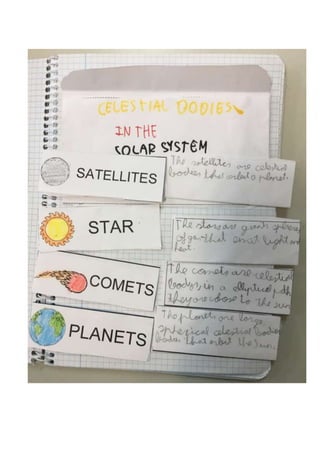 CELESTIAL BODIES
IN THE
SOLAR SYSTEM
SATELLITES
The satellites are celestial
bodies that orbit a planet.
STAR
The stars are giant spheres
of gas that emit light and
heat
COMETS
The comets are celestial
bodies in a elliptical path
they are close to the sun
PLANETS
The planets are large
spherical celestial bodies
bodies that orbit the Sun.